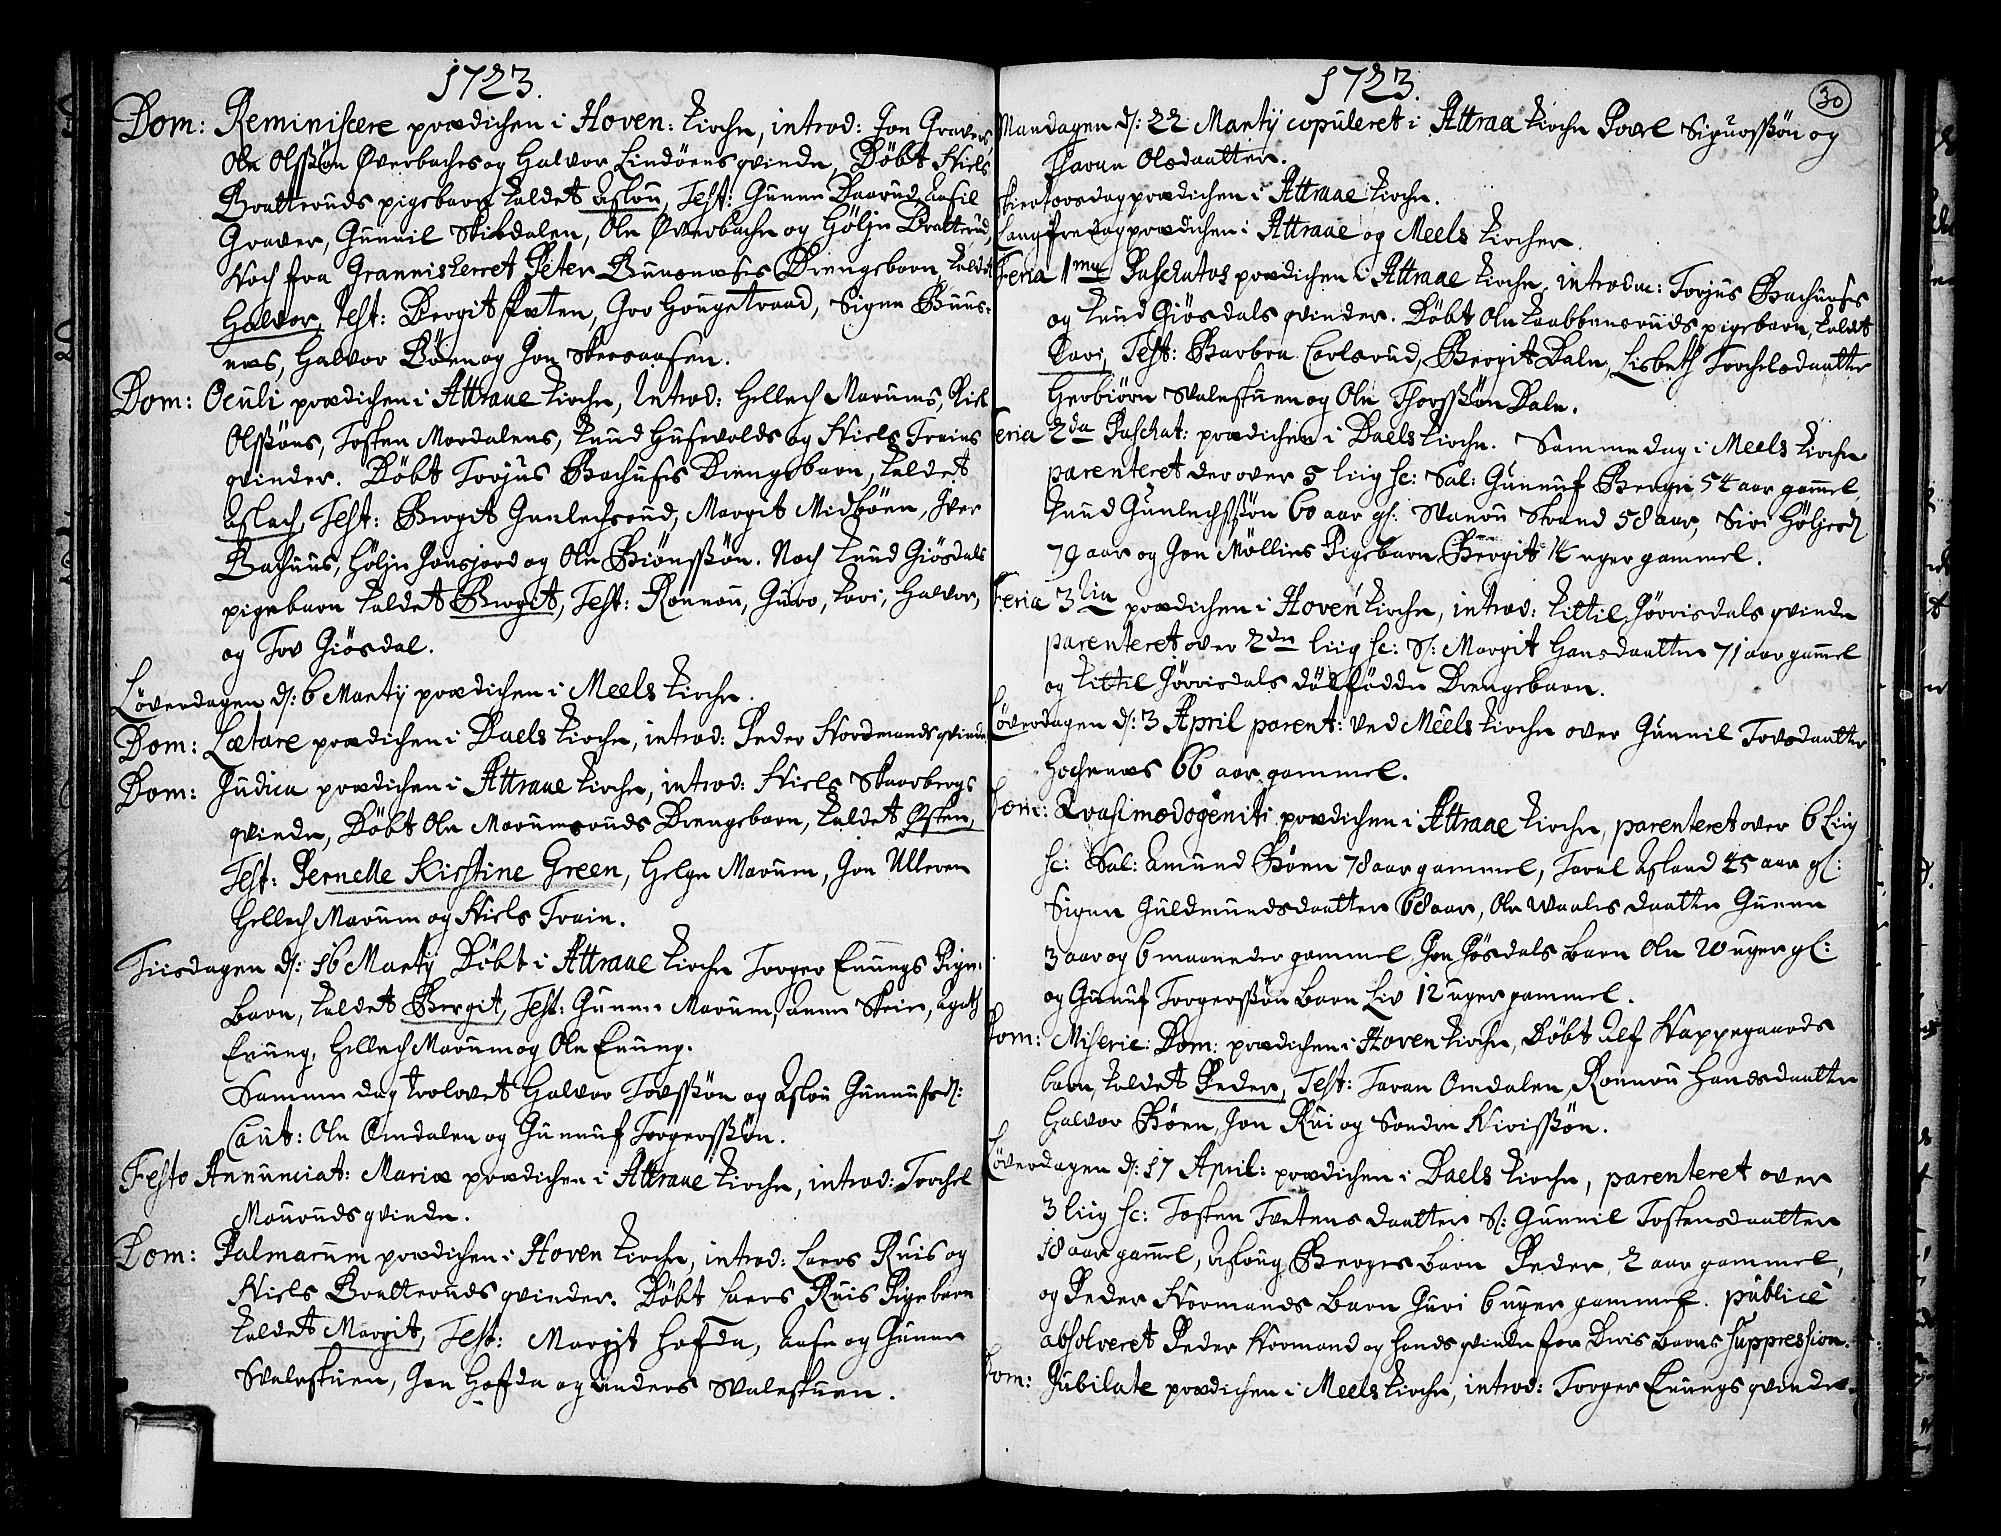 1723.
Dom: Reminiscere prædichen i Hoven: kirche, introd: Jon Gravers,
Ole Olssøn Øverbaches og Halvor Lindöens qvinde, Döbt Niels
Bratteruds pigebarn kaldet Aslou, Test: Gunne Baarud, Aasil
Graver, Gunnil Skibdalen, Ole Øverbache og Hölje Bratterud,
Noch fra Grannisherret Peter Buunæsis Drengebarn, kaldet
Halvor, Test: Bergit Græten, Gro Hougetraad, Signe Buus-
næs, Halvor Böen og Jon Skersaasen.
Dom: Oculi prædichen i Attraae kirche, Introd: Hellech Marums,
Olssöns, Tosten Mordalens, Knud Husevolds og Niels Trains
qvinder. Döbt Torjus Bachuses Drengebarn, kaldet
Aslach, Test: Birgit Gunlechsrud, Margit Midböen, Iver
Bachuus, Hölje Jonsjord og Ole Biönssön. Noch Knud Giösdals
pigebarn kaldet Birgit, Test: Ronnou, Guro, Kari, Halvor,
og Tov Giösdal.
Löverdagen d: 6 Martij prædichen i Meels kirche.
Dom: Lætare prædichen i Daels kirche, introd: Peder Nordmands qvinde
Dom: Judica prædichen i Attraae kirche, introd: Niels Skaarbergs
qvinde, Döbt Ole Marumsruds Drengebarn, kaldet Østen,
Test: Pernelle Kirstine Green, Helge Marum, Jon Ulleren
Hellech Marum og Niels Train.
Tiisdagen d: 16 Martij Döbt i Attraae kirche Torger Enungs Pige-
barn, kaldet Bergit, Test: Gunne Marum, Anne Skeie, Agath
Enung, Hellech Marum og Ole Enung.
Samme dag trolovet Halvor Tovssön og Aslou Gunnufsd:
Caut: Ole Omdalen og Gunnuf Torgerssön.
Festo Annunciat: Mariæ prædichen i Attraae kirche, introd: Torchel
Mouruds qvinde.
Dom: Palmarum prædichen i Hoven kirche, introd: Laers Ruis og
Niels Bratteruds qvinder. Döbt Laers Ruis Pigebarn
kaldet Margit, Test: Margit Hofda, Aase og Gunne
Svalestuen, Jon Hofda og Anders Svalestuen.
1723.
30
Mandagen d: 22 Martij copuleret i Attraa kirche Povel Sigurssön og
Tharan Olsdaatter.
Skiertorsdag prædichen i Attraae kirche.
Langfredag prædichen i Attraae og Meels kircher.
Feria 1ma Paschatos prædichen i Attraae kirche, introduc: Torjus Bachuses
og Knud Giösdals qvinder. Döbt Ole Krabbensruds pigebarn, kaldet
Kari, Test: Barbra Carlsrud, Bergit Dale, Lisbeth Torchelsdaatter
Herbiörn Svalestuen og Ole Thorssön Dale.
Feria 2da Paschat: prædichen i Daels kirche. Samme dag i Meels kirche
parenteret der over 5 liig sc: Sal: Gunnuf Berge 54 aar gammel,
Knud Gunlechssön 60 aar gl: Svanou Strand 58 aar, Siri Höljesd
79 aar og Jon Möllers Pigebarn Bergit 14 uger gammel.
Feria 3tia prædichen i Hoven kirche, introd: Kittil Jörrisdals qvinde
parenteret over 2de liig sc: S: Margit Hansdaatter 71 aar gammel
og Kittil Jörrisdals dödfödde Drengebarn.
Löverdagen d: 3 April parent: ved Meels kirche over Gunnil Tovsdaatter
Hochenæs 66 aar gammel.
Dom: Qvasimodogeniti prædichen i Attraae kirche, parenteret over 6 liig
sc: Sal: Amund Böen 78 aar gammel, Taral Asland 45 aar gl:
Signe Guldmundsdaatter 68 aar, Ole Waales daatter Gunne
3 aar og 6 maaneder gammel, Jon Jösdals barn Ole 20 uger gl:
og Gunuf Torgerssön barn Liv 12 uger gammel.
Dom: Miseric: Dom: prædichen i Hoven kirche, Döbt Ulf Kappegaards
barn, kaldet Peder, Test: Taran Omdalen, Ronnou Handsdaatter
Halvor Böen, Jon Rui og Sondre Nirissön.
Löverdagen d: 17 April: prædichen i Daels kirche, parenteret over
3 liig sc: Tosten Tvetens daatter S: Gunnil Tostensdaatter
18 aar gammel, Aslaug Berges barn Peder, 2 aar gammel,
og Peder Normands barn Guri 6 uger gammel. publicè
absolveret Peder Normand og hands qvinde for deris barns suppression.
Dom: Jubilate prædichen i Meels kirche, introd: Torger Enungs qvinde.